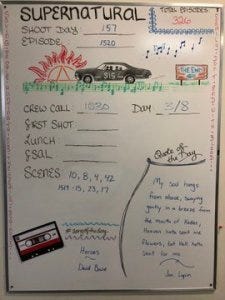 SUPERNATURAL
TOTAL EPISODES:
326
SHOOT DAY 157
EPISODE 1520
315
THE END
CREW CALL 1030 DAY 3/8
FIRST SHOT
LUNCH
SCENES 10, 8, 4, 42
1519 - 15, 23, 17
Quote of
the Day
My soul hangs
from above, swaying
gently in a breeze from
the mouth of
Heaven hath sent me
flowers, but Hell hath
sent for me
#songoftheday
Heroes
David Bowie